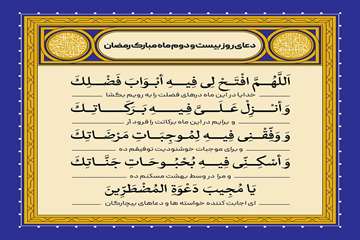 دعای روز بیست و دوم ماه مبارک رمضان
اَللّهُمَّ افْتَحْ لِی فِیهِ أَبْوَابَ فَضْلِكَ
خدایا در این ماه درهای فضلت را به رویم بگشا
وَ أَنْزِلْ عَلَیَّ فِیهِ بَرَكَاتِكَ
و برایم در این ماه برکاتت را فرود آر
وَ وَفِّقْنِی فِیهِ لِمُوجِبَاتِ مَرْضَاتِكَ
و برای موجبات خوشنودیت توفیقم ده
وَ أَسْكِنِّی فِیهِ بُحْبُوحَاتِ جَنَّاتِكَ
و مرا در وسط بهشت مسکنم ده
یَا مُجِیبَ دَعْوَةِ الْمُضْطَرِّینَ
ای اجابت کننده خواسته ها و دعاهای بیچارگان